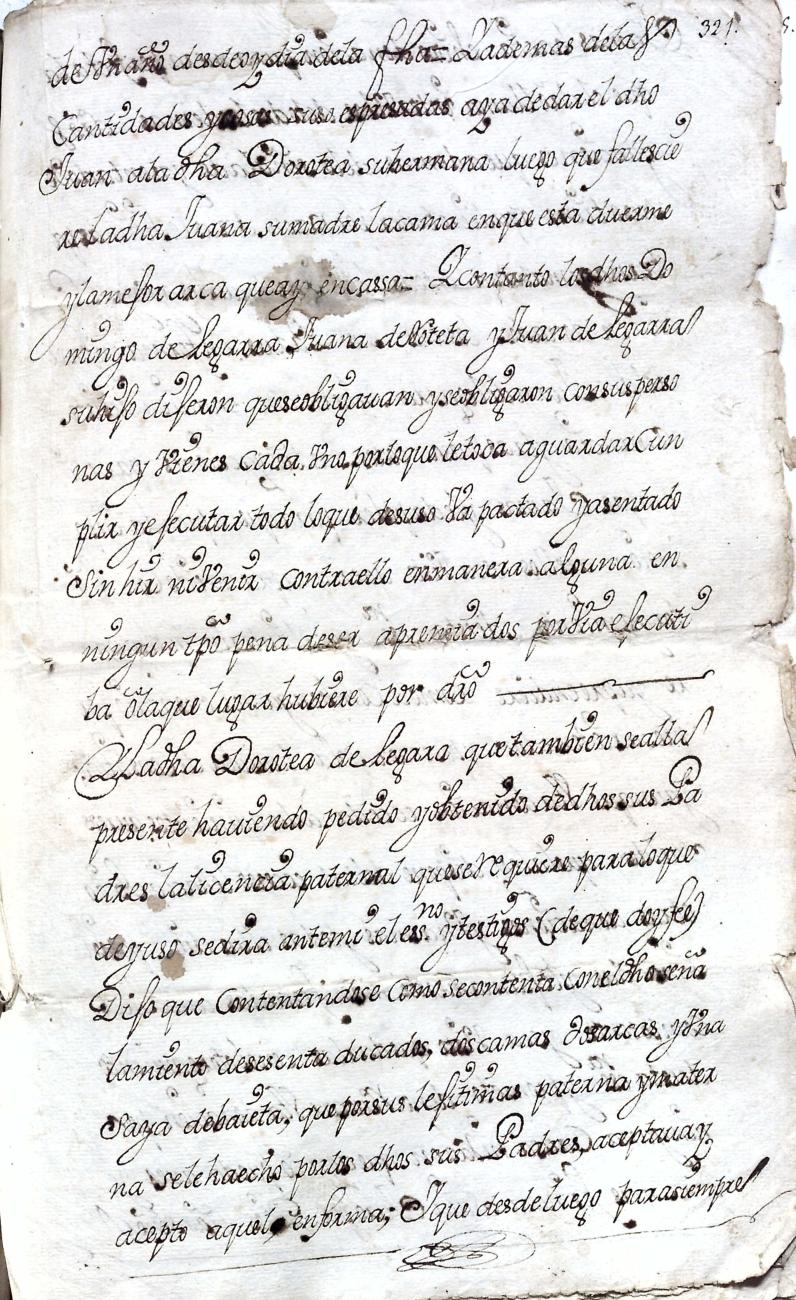 321.
de Un año desde oy dia dela fha= Y ademas delas
Cantidades y cosas suso espresadas aya de dar el dho
Juan ala dha Dorotea su hermana luego que fallescie
re la dha Juana su madre la cama en que esta duerme
y la mejor arca que ay en cassa= Y con tanto los dhos Do
mingo de Legarra Juana de Noteta y Juan de Legarra
su hijo dijeron que se obligauan y se obligaron con sus perso
nas y Vienes cada Vno por lo que le toca a guardar Cun
plir y ejecutar todo lo que desuso Va pactado y asentado
Sin hir ni Venir contra ello en manera alguna en
ningun tpo pena de ser apremiados por Via ejecuti
ba o la que lugar hubiere por dro
Y la dha Dorotea de Legara que tambien se alla
presente hauiendo pedido y obtenido de dhos sus Pa
dres la licencia paternal que se rrequiere para lo que
de yuso se dira ante mi el essno y testigos (de que doy fee)
Dijo que Contentandose Como se contenta con el dho seña
lamiento de sesenta ducados, dos camas dos arcas y Vna
Saya de baieta, que por sus lejitimas paterna y mater
na se le ha echo por los dhos sus Padres, aceptaua y
acepto aquel en forma; Y que desde luego para siempre